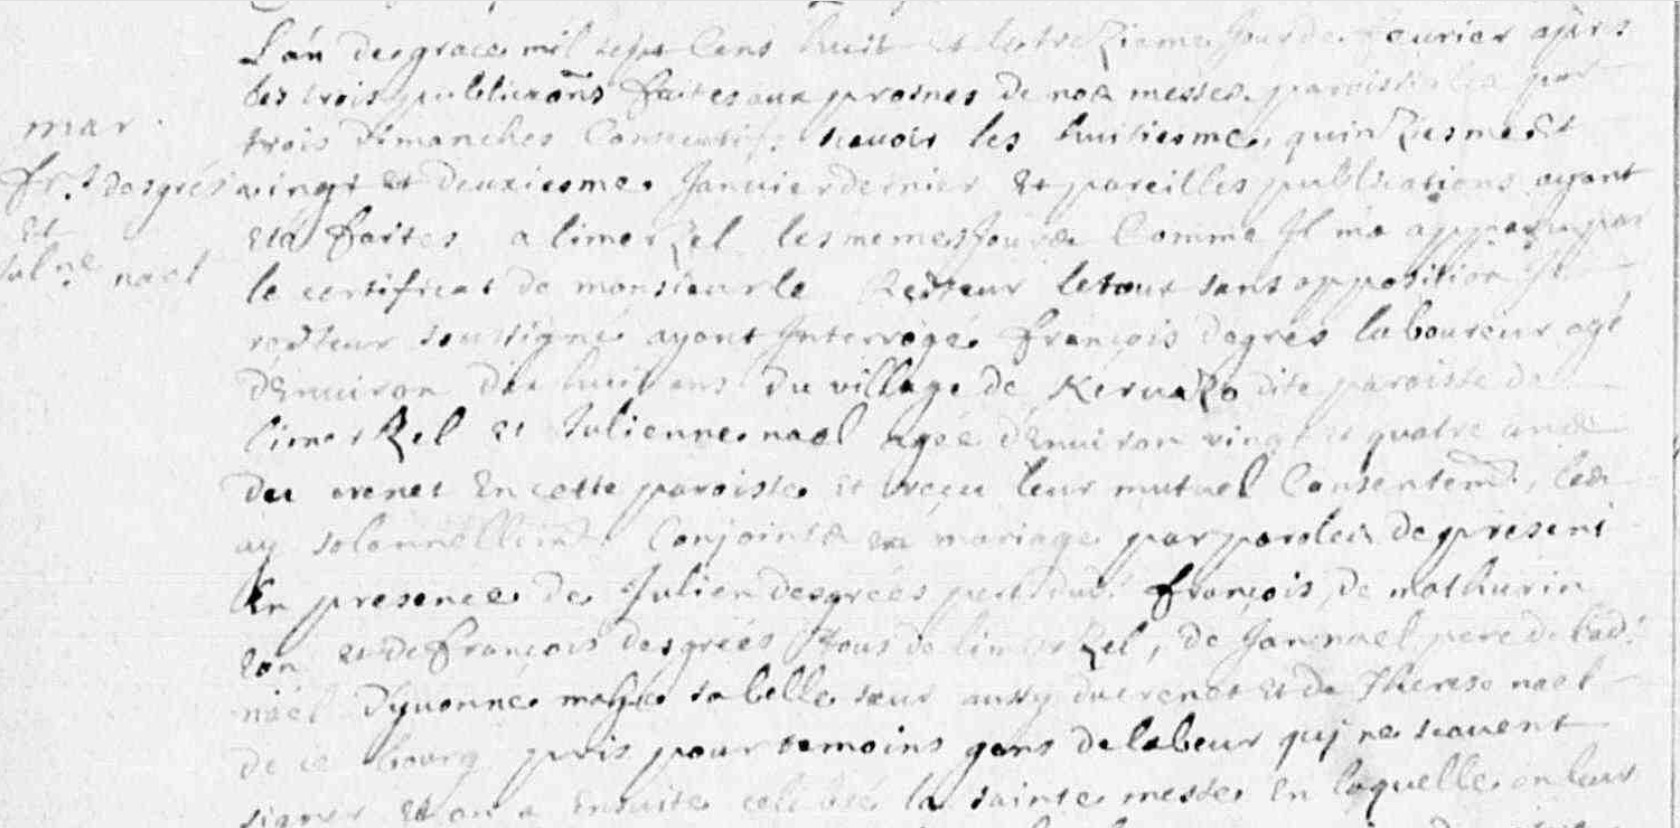 L'an de grace mil sept cens huit et le treziême jour de feurier après
les trois publicaons faites aux prosnes de nos messes paroissiales par
mar.
trois dimanches consecutifs scauoir les huitiesme, quinziesme et
fr. desgrés vingt et deuxiesme Januier dernier et pareilles publications ayant
et
eté faites a limerzel les memes jours comme Il m'a apparu par
jul.ne nael
le certificat de monsieur le Recteur le tout sans opposition Je
recteur soussigné ayant Interrogé françois degrés laboureur agé
d'enuiron huit ans du village de Keruazo dite paroisse de
limerzel et Julienne nael agée d'enuiron vingt et quatre ans
du en cette paroisse et reçu leur mutuel consentemt, les
ay solennellemt conjoints en mariage par paroles de present
En presence de Julien desgrées pere dud. françois, de mathurin
et de françois desgrées tous de limerzel, de Jan nael pere de lad.
nael d'yuonne sa belle soeur aussy du et de Therese nael
de ce bourg pris pour temoins gens de labeur qui ne scauent
signer et on a ensuite celebré la sainte messe En laquelle on leur